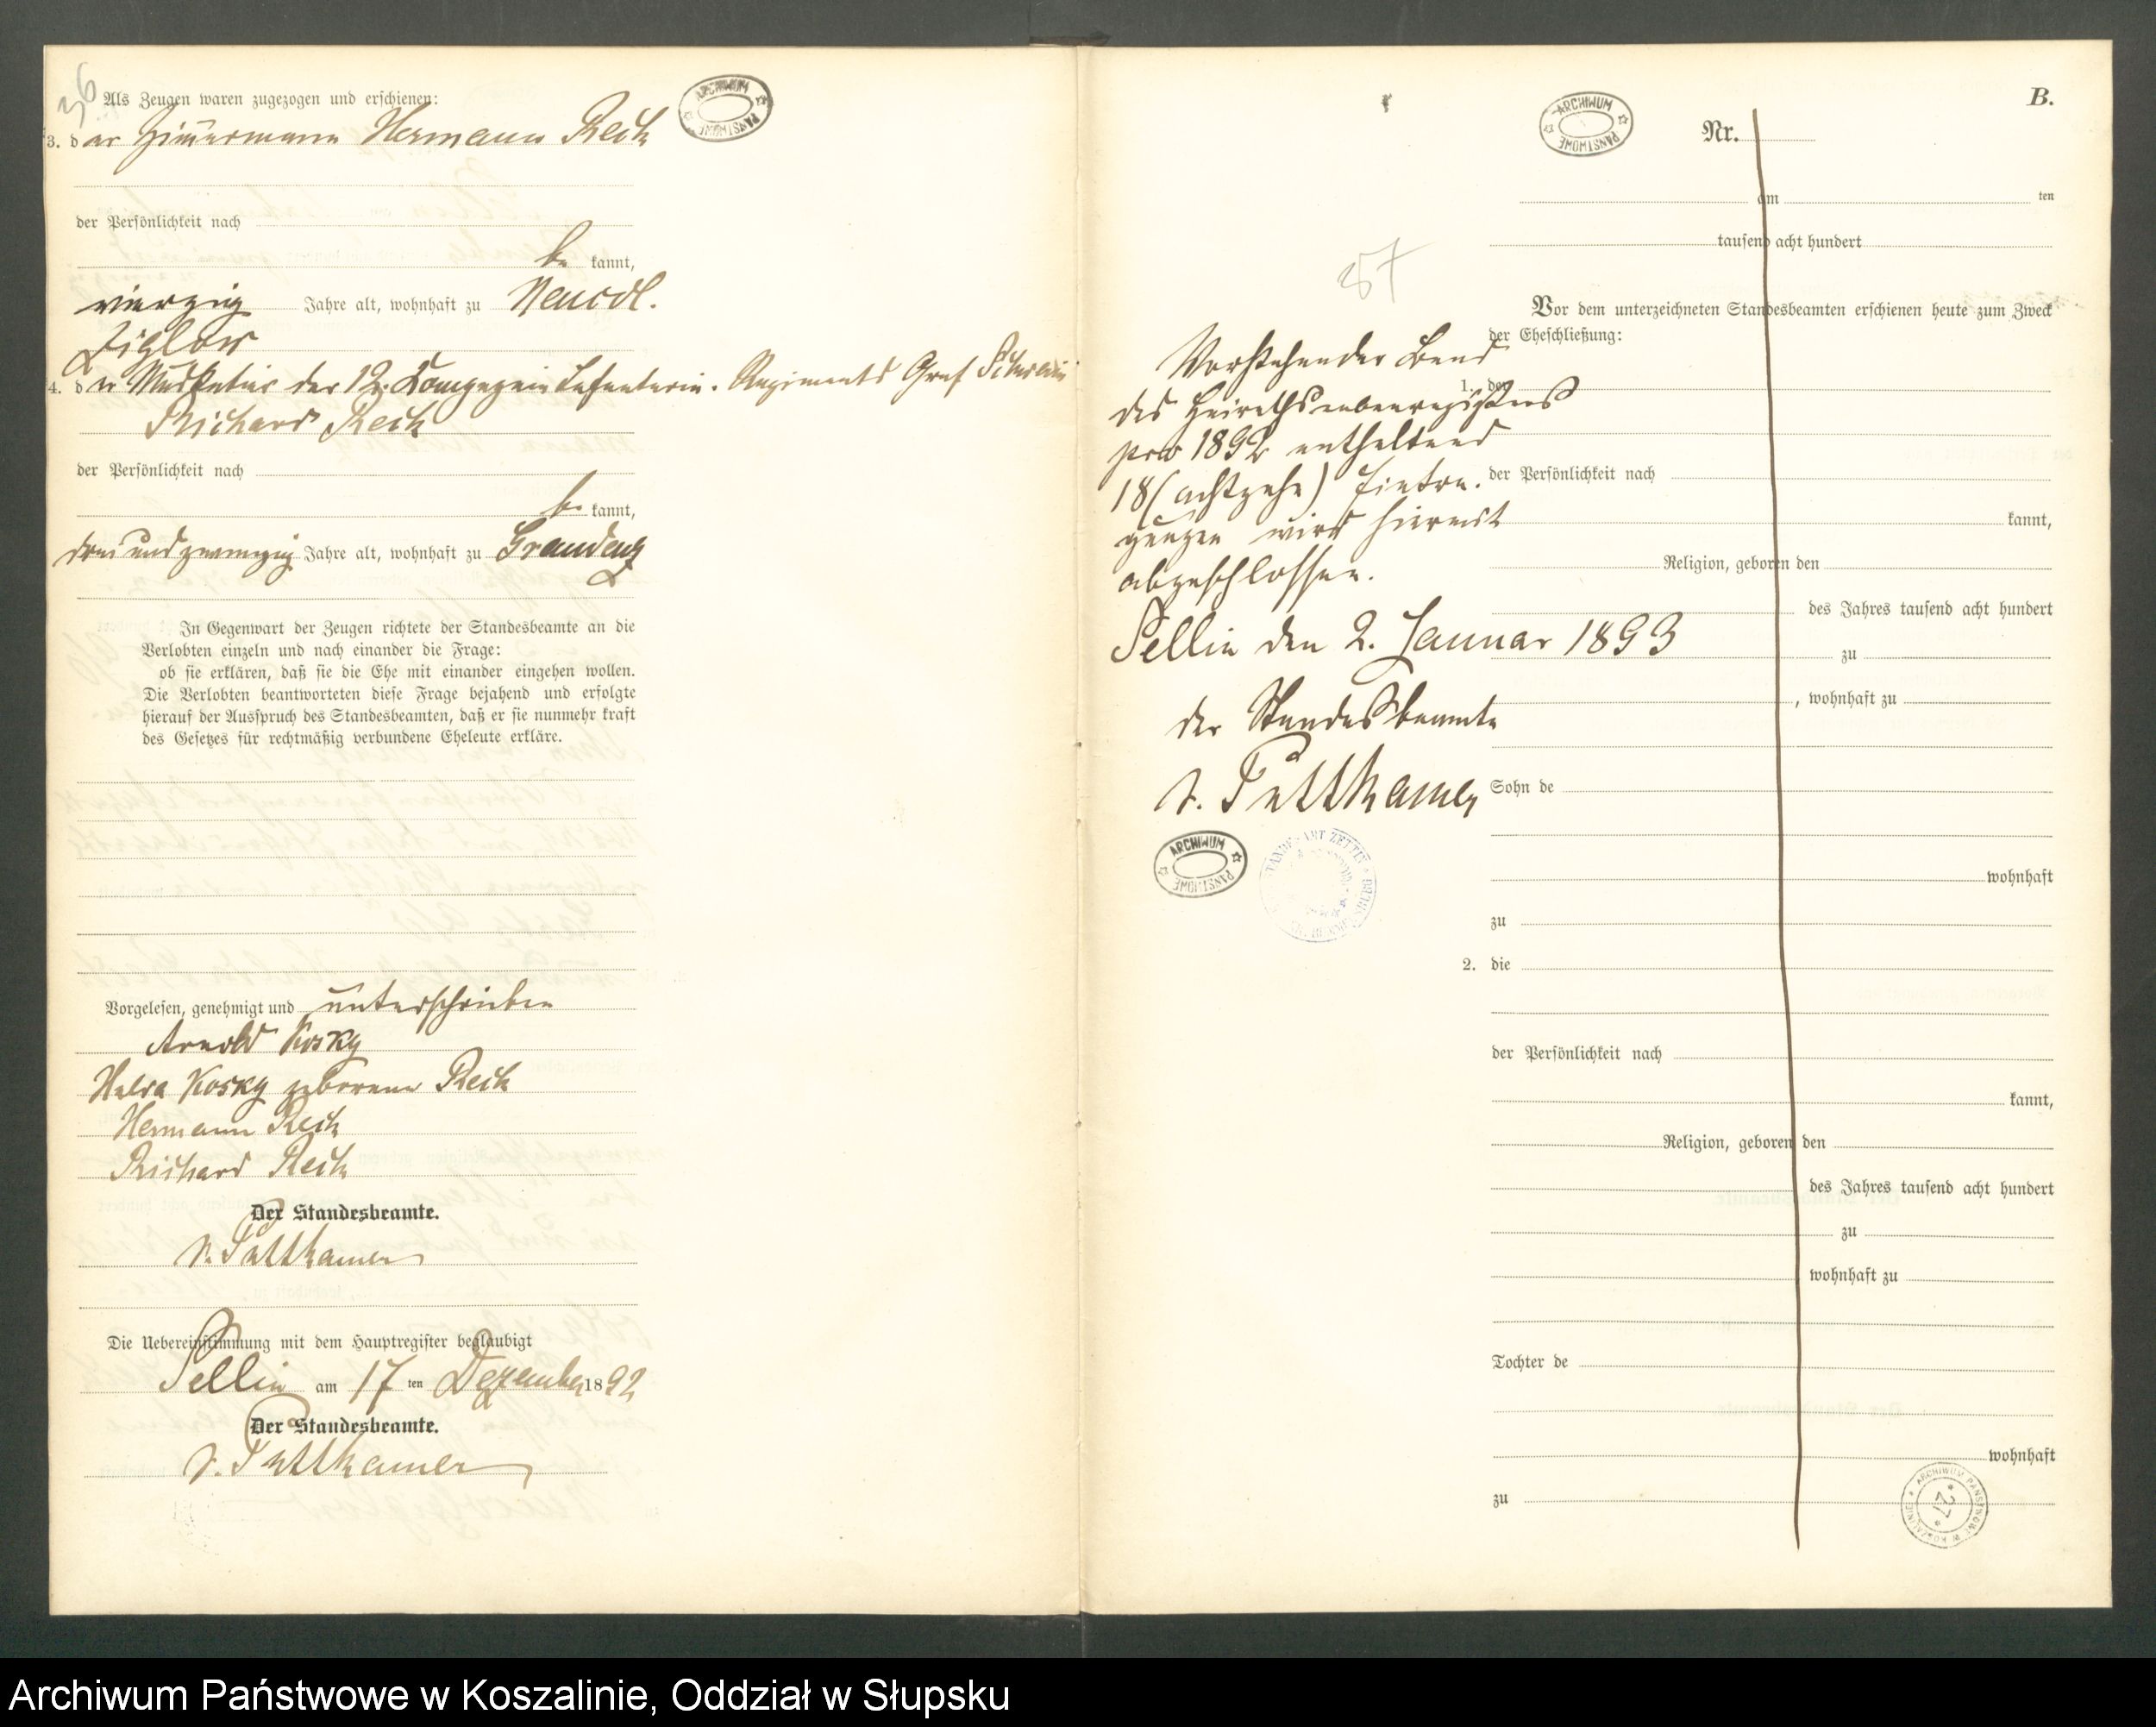 36
Als Zeugen waren zugezogen und erschienen:
3. der Zimmermann Hermann Reck
der Persönlichkeit nach
be kannt,
vierzig Jahre alt, wohnhaft zu Neucol.
Ziglow
4. der Musketier der 12. Compagnie Infanterie. Regiments Graf Schwerin
Richard Reck
der Persönlichkeit nach
be kannt,
drei und zwanzig Jahre alt, wohnhaft zu Graudenz
In Gegenwart der Zeugen richtete der Standesbeamte an die
Verlobten einzeln und nach einander die Frage:
ob sie erklären, daß sie die Ehe mit einander eingehen wollen.
Die Verlobten beantworteten diese Frage bejahend und erfolgte
hierauf der Ausspruch des Standesbeamten, daß er sie nunmehr kraft
des Gesetzes für rechtmäßig verbundene Eheleute erkläre.
Vorgelesen, genehmigt und unterschrieben
Arnold Kosky
Kosky geborene Reck
Hermann Reck
Richard Reck
Der Standesbeamte.
v. Puttkamer
Die Uebereinstimmung mit dem Hauptregister beglaubigt
Sellin am 17 ten Dezember 1892
Der Standesbeamte.
v. Puttkamer
ARCHIWUM PAŃSTWOWE
37
Vorstehender Band
des Heiraths
pro 1892 enthaltend
18 (achtzehn) Eintra-
gungen wird hiermit
abgeschlossen.
Sellin den 2. Januar 1893
der Standesbeamte
v. Puttkamer
ARCHIWUM PAŃSTWOWE
ARCHIWUM PAŃSTWOWE
B.
Nr.
am ten
tausend acht hundert
Vor dem unterzeichneten Standesbeamten erschienen heute zum Zweck
der Eheschließung:
1. der
der Persönlichkeit nach
kannt,
Religion, geboren den
des Jahres tausend acht hundert
zu
, wohnhaft zu
Sohn de
wohnhaft
zu
2. die
der Persönlichkeit nach
kannt,
Religion, geboren den
des Jahres tausend acht hundert
zu
wohnhaft zu
Tochter de
wohnhaft
zu
ARCHIWUM PAŃSTWOWE W KOSZALINIE
* 27 *
Archiwum Państwowe w Koszalinie, Oddział w Słupsku